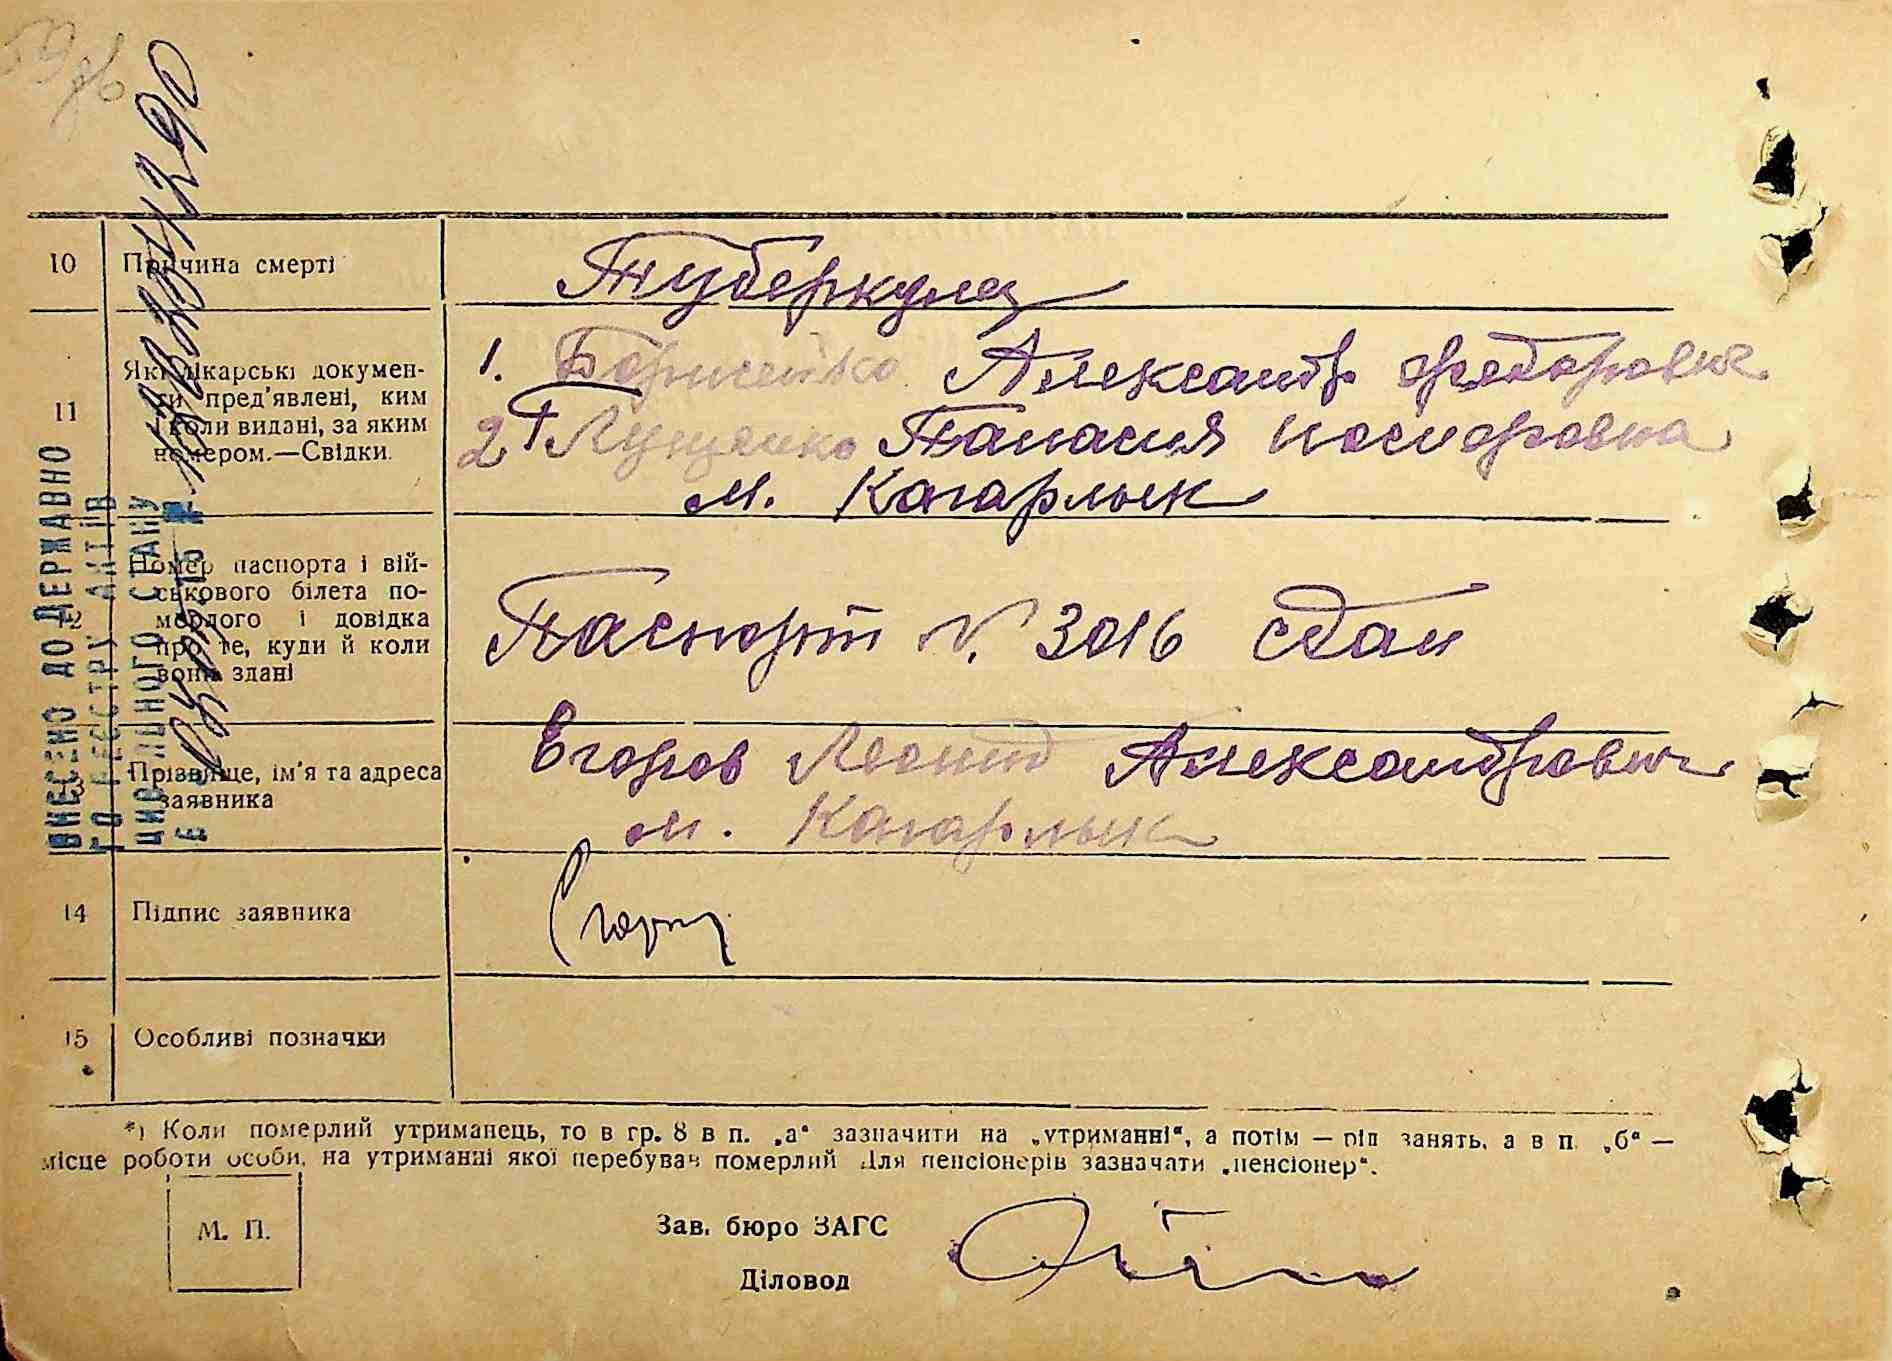 10 Причина смерті Туберкулез
11 Які лікарські докумен-
ти пред'явлені, ким
і коли видані, за яким
номером.—Свідки.
1. Борисенко Александр Федорович
2 Лущенко Танасия
м. Кагарлык
12 Номер паспорта і вій-
ськового білета по-
мерлого і довідка
про те, куди й коли
вони здані
Паспорт N. 3016 сдан
13 Прізвище, ім'я та адреса
заявника
Егоров Леонид Александрович
м. Кагарлык
14 Підпис заявника
15 Особливі позначки
*) Коли померлий утриманець, то в гр. 8 в п. „а“ зазначити на „утриманні“, а потім — рід занять, а в п. „б“ —
місце роботи особи, на утриманні якої перебував померлий Для пенсіонерів зазначати „пенсіонер“.
М. П.
Зав. бюро ЗАГС
Діловод
ВНЕСЕНО ДО ДЕРЖАВНО
ГО РЕЄСТРУ АКТІВ
ЦИВІЛЬНОГО СТАНУ